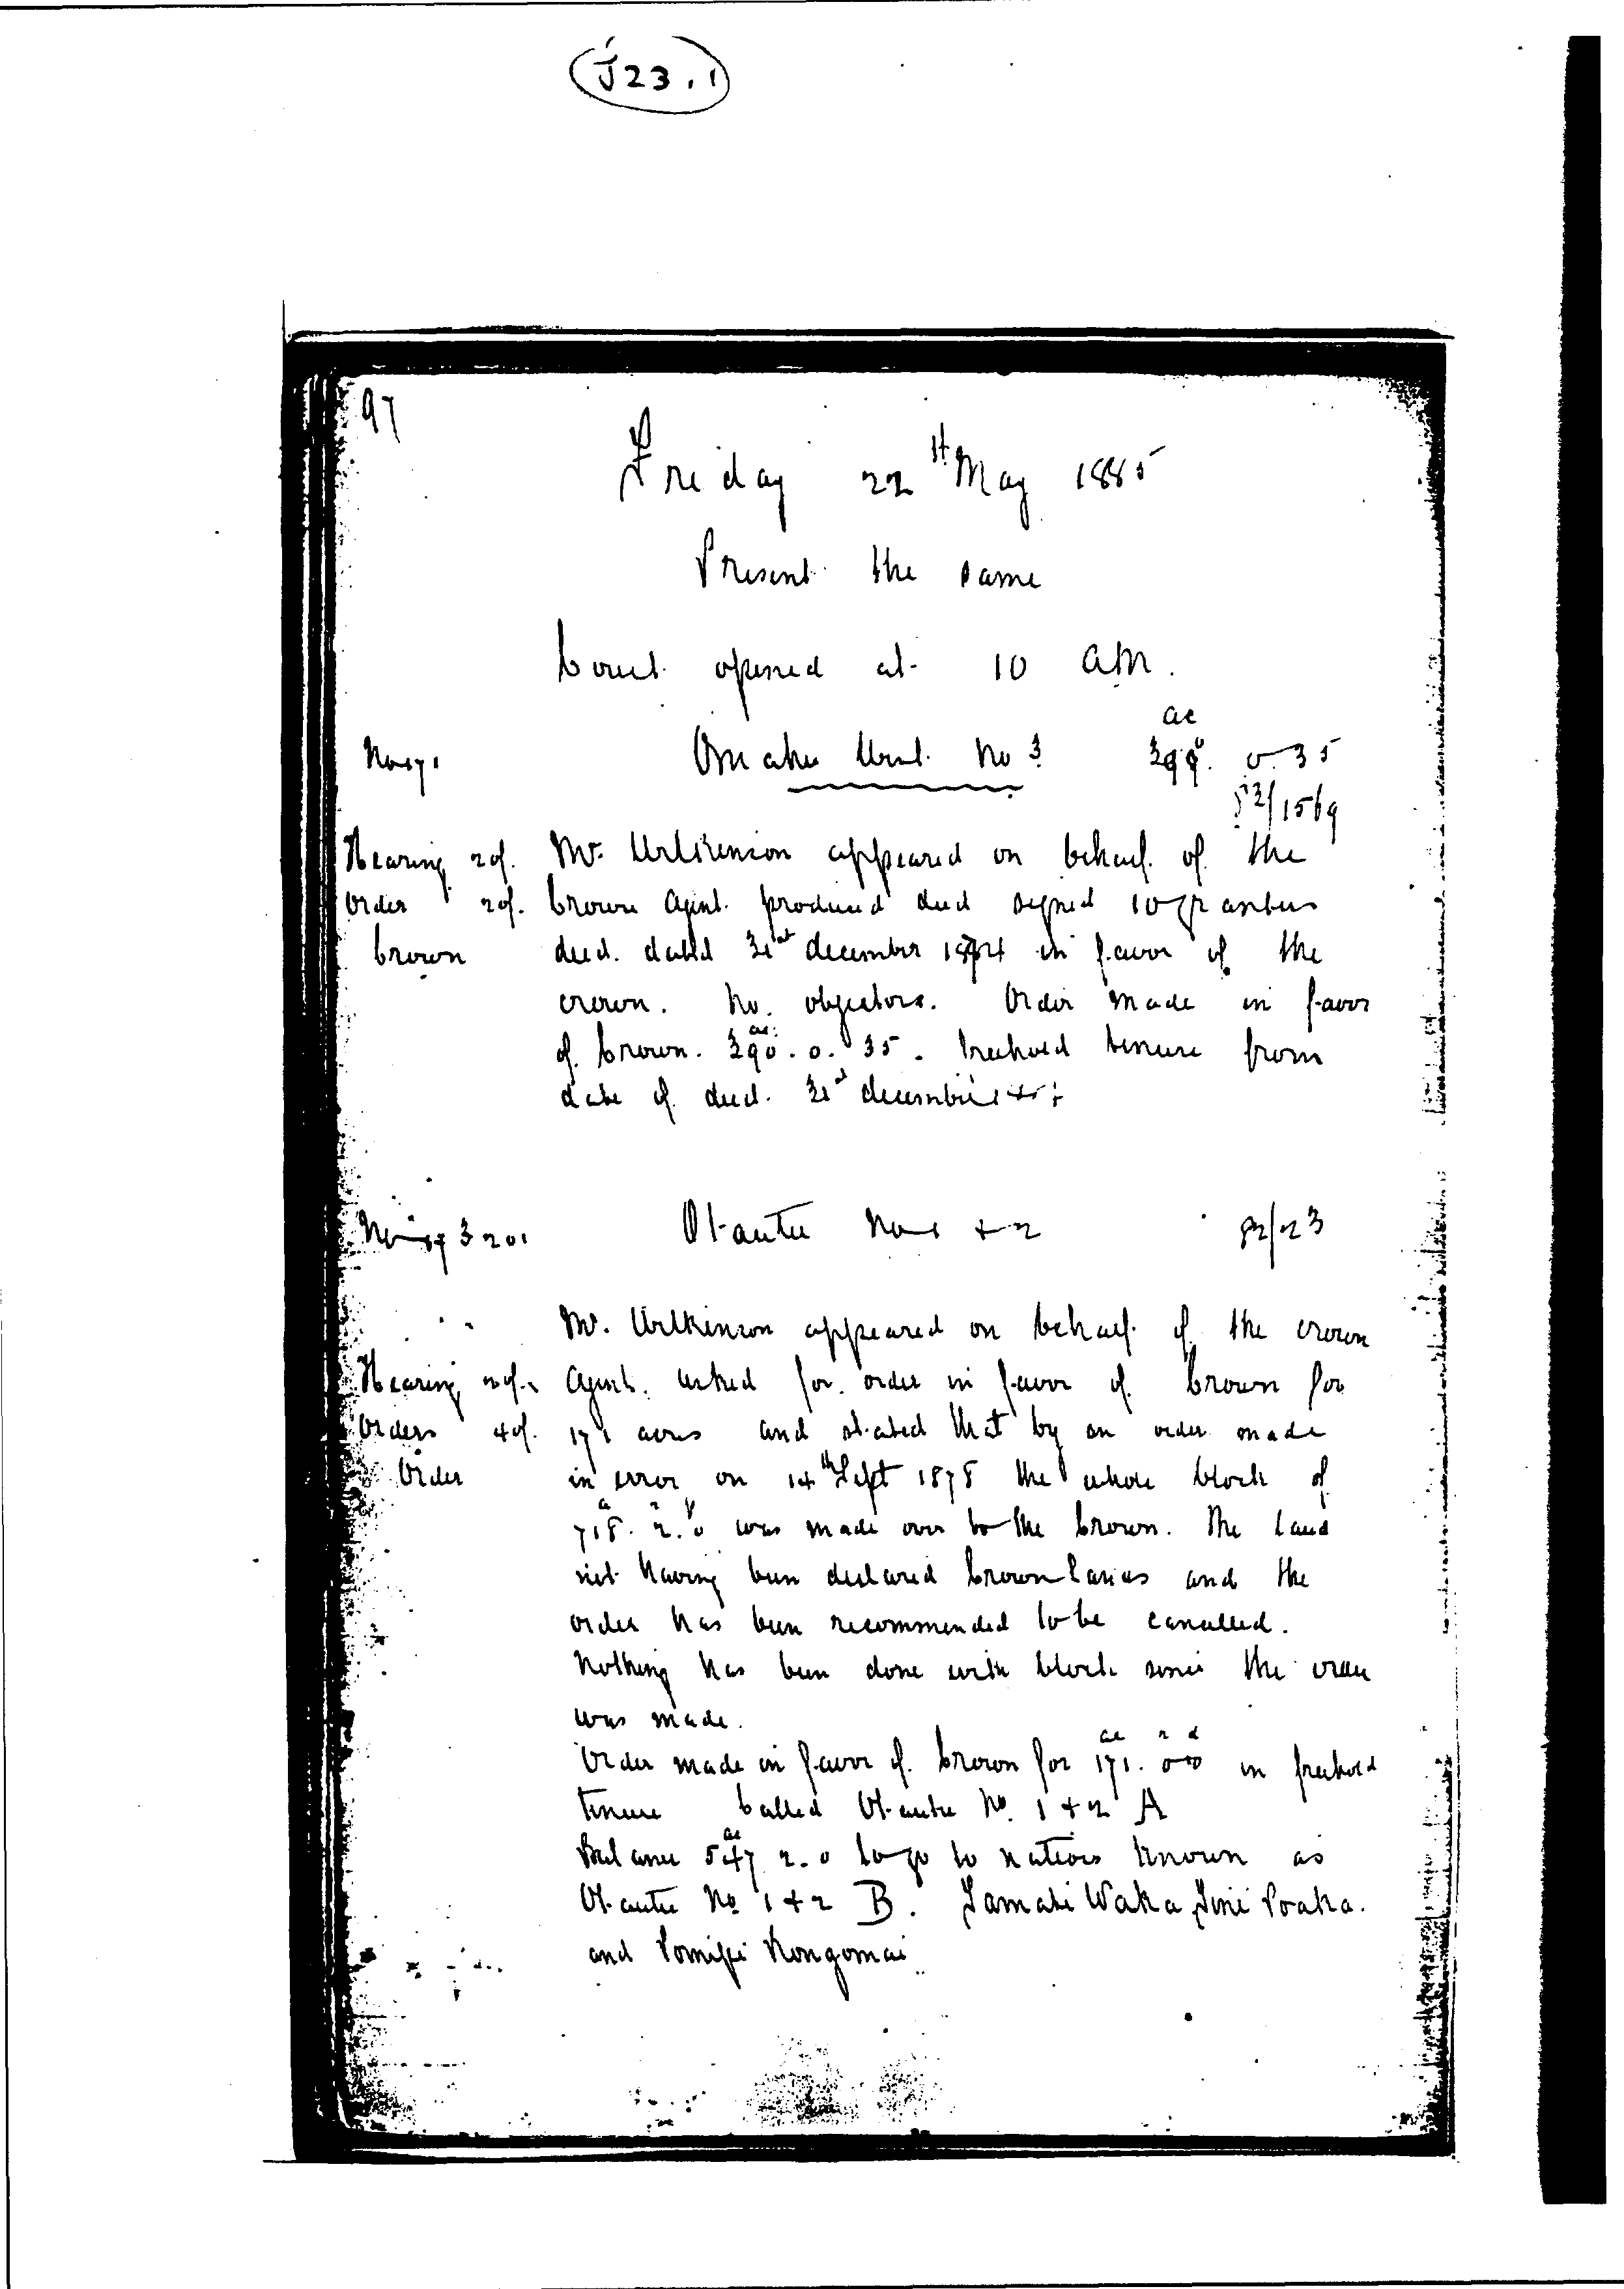 J23.1
97
Friday 22nd May 1885
Present the same
Court opened at 10 AM.
ac
Omahu West No 3 0. 35
Hearing 20/. Mr. Wilkinson appeared on behalf of the
Order 20/. Crown Agent. produced deed signed 10 grantors
Crown deed. dated 31st december 1874 in favor of the
crown. No. objectors. Order made in favor
of Crown. 290ac. 0. 35. freehold tenure from
date of deed. 31st december
Otautu No 1 + 2 82/23
Mr. Wilkinson appeared on behalf of the crown
Hearing Agent. asked for order in favor of Crown for
Orders 40/. 171 acres and stated that by an order made
Order in error on 14th Sept 1878 the whole block of
718. 2. 0 was made over to the Crown. The land
not having been declared Crown Lands and the
order has been recommended to be cancelled.
Nothing has been done with block since the order
was made.
Order made in favor of Crown for 171. 0 0 in freehold
tenure Called Otautu No. 1 + 2 A
Balance 547ac 2. 0 to go to natives known as
Otautu No 1 + 2 B. Tamati Waka Poaka.
and Rongomai